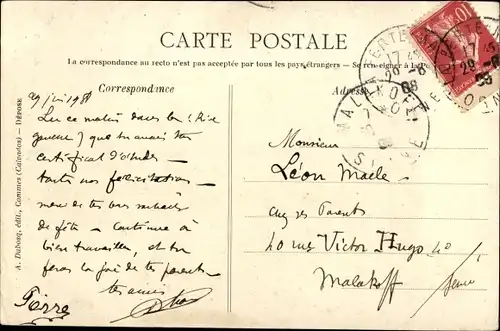 CARTE POSTALE
La correspondance au recto n'est pas acceptée par tous les pays étrangers. — Se renseigner à la P
Correspondance
Adres
A. Dubosq, édit., Commes (Calvados) — DÉPOSÉ
29 juin 1908
Lu ce matin dans le
que tu avais ton
certificat d'études —
toutes nos félicitations
de tes bons souhaits
de fête — Continue à
bien travailler, et tu
feras la joie de tes parents
tes amis
Pierre
Monsieur
Léon Maële
chez ses Parents
40 rue Victor Hugo 40
Malakoff Seine
MALAKOFF
17
29 - 6
08
10